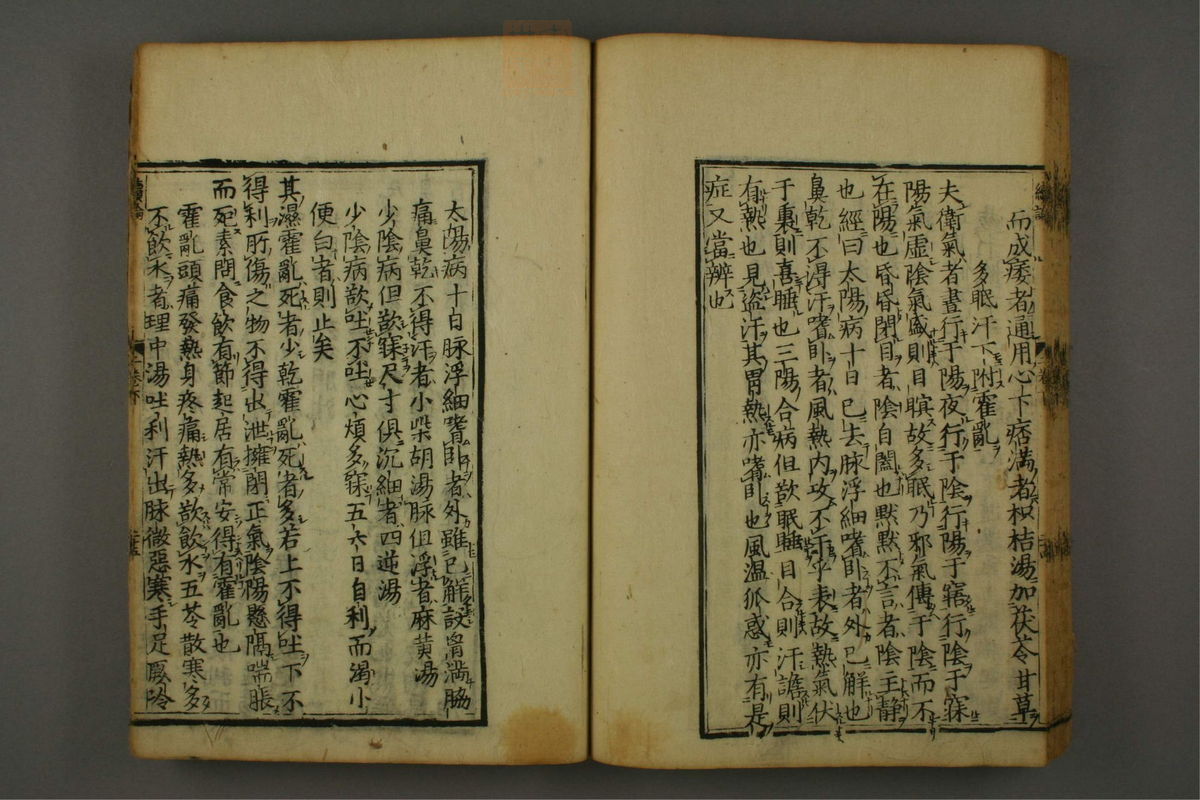 而成痿者通用心下痞滿者枳桔湯加茯苓甘草
多眠汗下附霍亂
夫衛氣者晝行于陽夜行于陰行陽于寤行陰于寐
陽氣虛陰氣盛則目瞑故多眠乃邪氣傳于陰而不
在陽也昏昏閉目者陰自闔也默默不言者陰主靜
也經曰太陽病十日已去脉浮細嗜卧者外已解也
鼻乾不得汗嗜卧者風熱內攻不干乎表故熱氣伏
于裏則喜睡也三陽合病但欲眠睡目合則汗譫則
有熱也見盗汗其胃熱亦嗜卧也風温狐惑亦有是
症又當辨也
太陽病十日脉浮細嗜卧者外雖已解設胷滿脇
痛鼻乾不得汗者小柴胡湯脉但浮者麻黄湯
少陰病但欲寐尺寸俱沉細者四逆湯
少陰病欲吐不吐心煩多寐五六日自利而渴小
便白者則止矣
其濕霍亂死者少乾霍亂死者多若上不得吐下不
得利所傷之物不得出泄擁閉正氣陰陽懸隔喘脹
而死素問食飲有節起居有常安得有霍亂也
霍亂頭痛發熱身疼痛熱多欲飲水五苓散寒多
不飲水者理中湯吐利汗出脉微惡寒手足厥冷